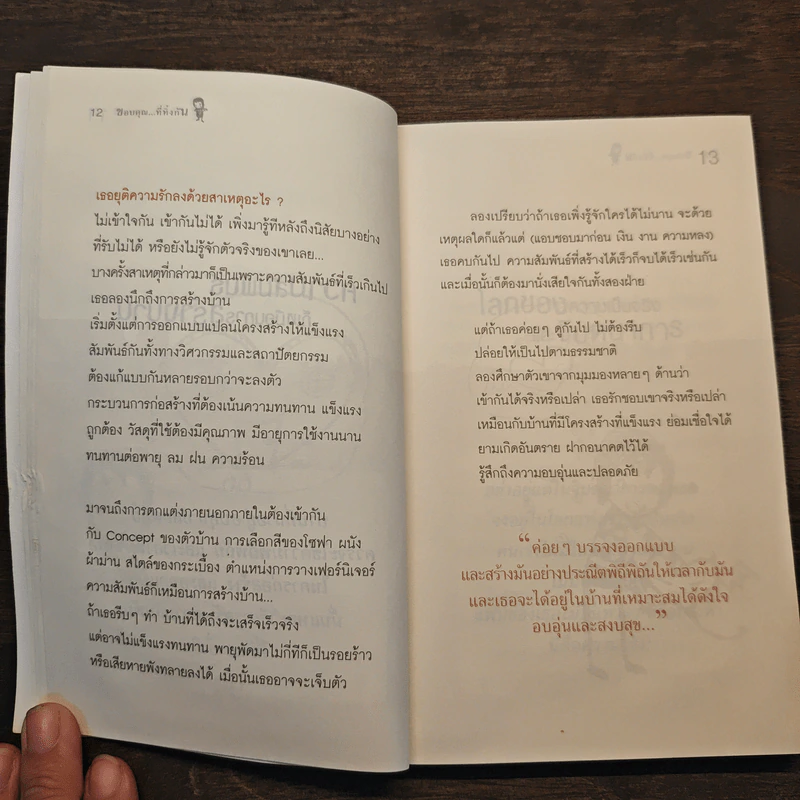 12 ขอบคุณ...ที่ทิ้งกัน
เธอยุติความรักลงด้วยสาเหตุอะไร ?
ไม่เข้าใจกัน เข้ากันไม่ได้ เพิ่งมารู้ทีหลังถึงนิสัยบางอย่าง
ที่รับไม่ได้ หรือยังไม่รู้จักตัวจริงของเขาเลย...
บางครั้งสาเหตุที่กล่าวมาก็เป็นเพราะความสัมพันธ์ที่เร็วเกินไป
เธอลองนึกถึงการสร้างบ้าน
เริ่มตั้งแต่การออกแบบแปลนโครงสร้างให้แข็งแรง
สัมพันธ์กันทั้งทางวิศวกรรมและสถาปัตยกรรม
ต้องแก้แบบกันหลายรอบกว่าจะลงตัว
กระบวนการก่อสร้างที่ต้องเน้นความทนทาน แข็งแรง
ถูกต้อง วัสดุที่ใช้ต้องมีคุณภาพ มีอายุการใช้งานนาน
ทนทานต่อพายุ ลม ฝน ความร้อน
มาจนถึงการตกแต่งภายนอกภายในต้องเข้ากัน
กับ Concept ของตัวบ้าน การเลือกสีของโซฟา ผนัง
ผ้าม่าน สไตล์ของกระเบื้อง ตำแหน่งการวางเฟอร์นิเจอร์
ความสัมพันธ์ก็เหมือนการสร้างบ้าน...
ถ้าเธอรีบๆ ทำ บ้านที่ได้ถึงจะเสร็จเร็วจริง
แต่อาจไม่แข็งแรงทนทาน พายุพัดมาไม่กี่ทีก็เป็นรอยร้าว
หรือเสียหายพังทลายลงได้ เมื่อนั้นเธออาจจะเจ็บตัว
13
ลองเปรียบว่าถ้าเธอเพิ่งรู้จักใครได้ไม่นาน จะด้วย
เหตุผลใดก็แล้วแต่ (แอบชอบมาก่อน เงิน งาน ความหลง)
เธอคบกันไป ความสัมพันธ์ที่สร้างได้เร็วก็จบได้เร็วเช่นกัน
และเมื่อนั้นก็ต้องมานั่งเสียใจกันทั้งสองฝ่าย
แต่ถ้าเธอค่อยๆ ดูกันไป ไม่ต้องรีบ
ปล่อยให้เป็นไปตามธรรมชาติ
ลองศึกษาตัวเขาจากมุมมองหลายๆ ด้านว่า
เข้ากันได้จริงหรือเปล่า เธอรักชอบเขาจริงหรือเปล่า
เหมือนกับบ้านที่มีโครงสร้างที่แข็งแรง ย่อมเชื่อใจได้
ยามเกิดอันตราย ฝากอนาคตไว้ได้
รู้สึกถึงความอบอุ่นและปลอดภัย
“ค่อยๆ บรรจงออกแบบ
และสร้างมันอย่างประณีตพิถีพิถันให้เวลากับมัน
และเธอจะได้อยู่ในบ้านที่เหมาะสมได้ดังใจ
อบอุ่นและสงบสุข...”